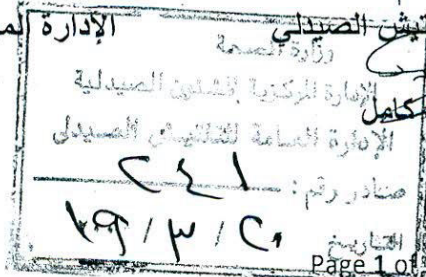 تيش الصيدلي الإدارة الم
وزارة الصحة
الإدارة المركزية للشئون الصيدلية
كامل
الإدارة العامة للتفتيش الصيدلى
صادر رقم : ٢٤١
التاريخ ٢٠ / ٣ / ١٩
Page 1 of